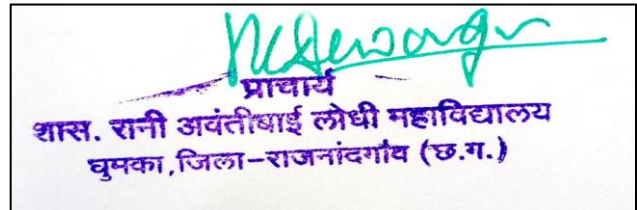 प्राचार्य
शास. रानी अवंतीबाई लोधी महाविद्यालय
घुमका,जिला-राजनांदगांव (छ.ग.)